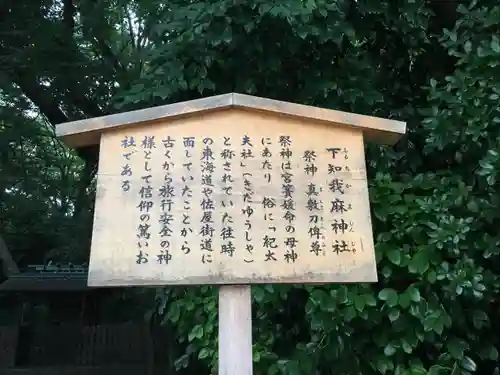 下知我麻神社
祭神 真敷刀俾尊
祭神は宮簀媛命の母神
にあたり 俗に「紀太
夫社」(きたゆうしゃ)
と称されていた 往時
の東海道や佐屋街道に
面していたことから
古くから旅行安全の神
様として信仰の篤いお
社である